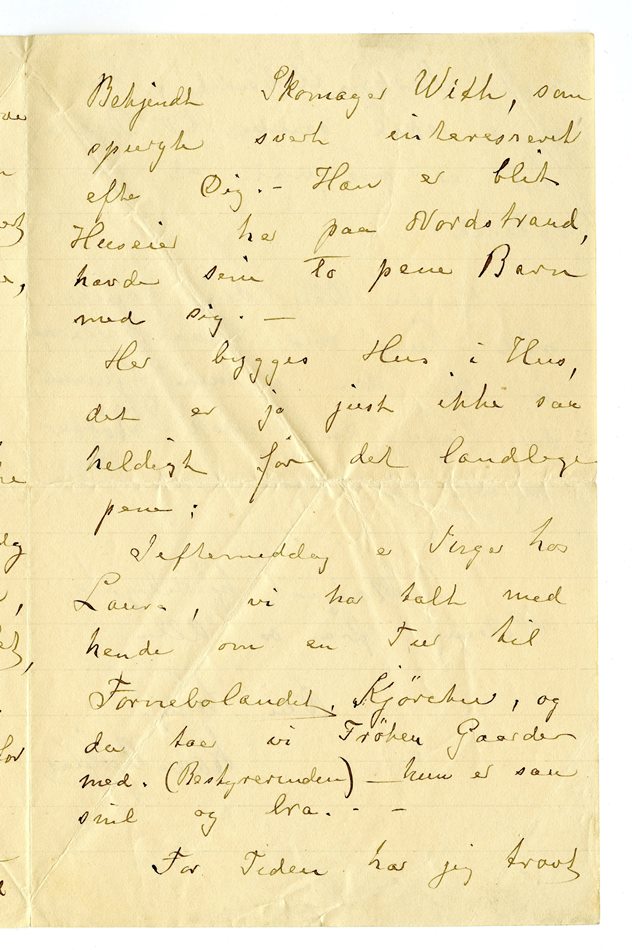 Bekjendt Skomager With, som
spurgte svært interesseret
efte Dig. – Han er blit
Huseier her paa Nordstrand,
havde sine To pene Barn
med sig. –
Her bygges Hus i Hus,
det er jo just ikke saa
heldigt for det landlege
pene;
I eftermeddag er Inger hos
Laura, vi har talt med
hende om en Tur til
Fornebolandet, Kjöretur, og
da taer vi Fröken Gaarder
med. (Bestyrerinden) – hun er saa
snil og bra. – –
For Tiden har jeg travt